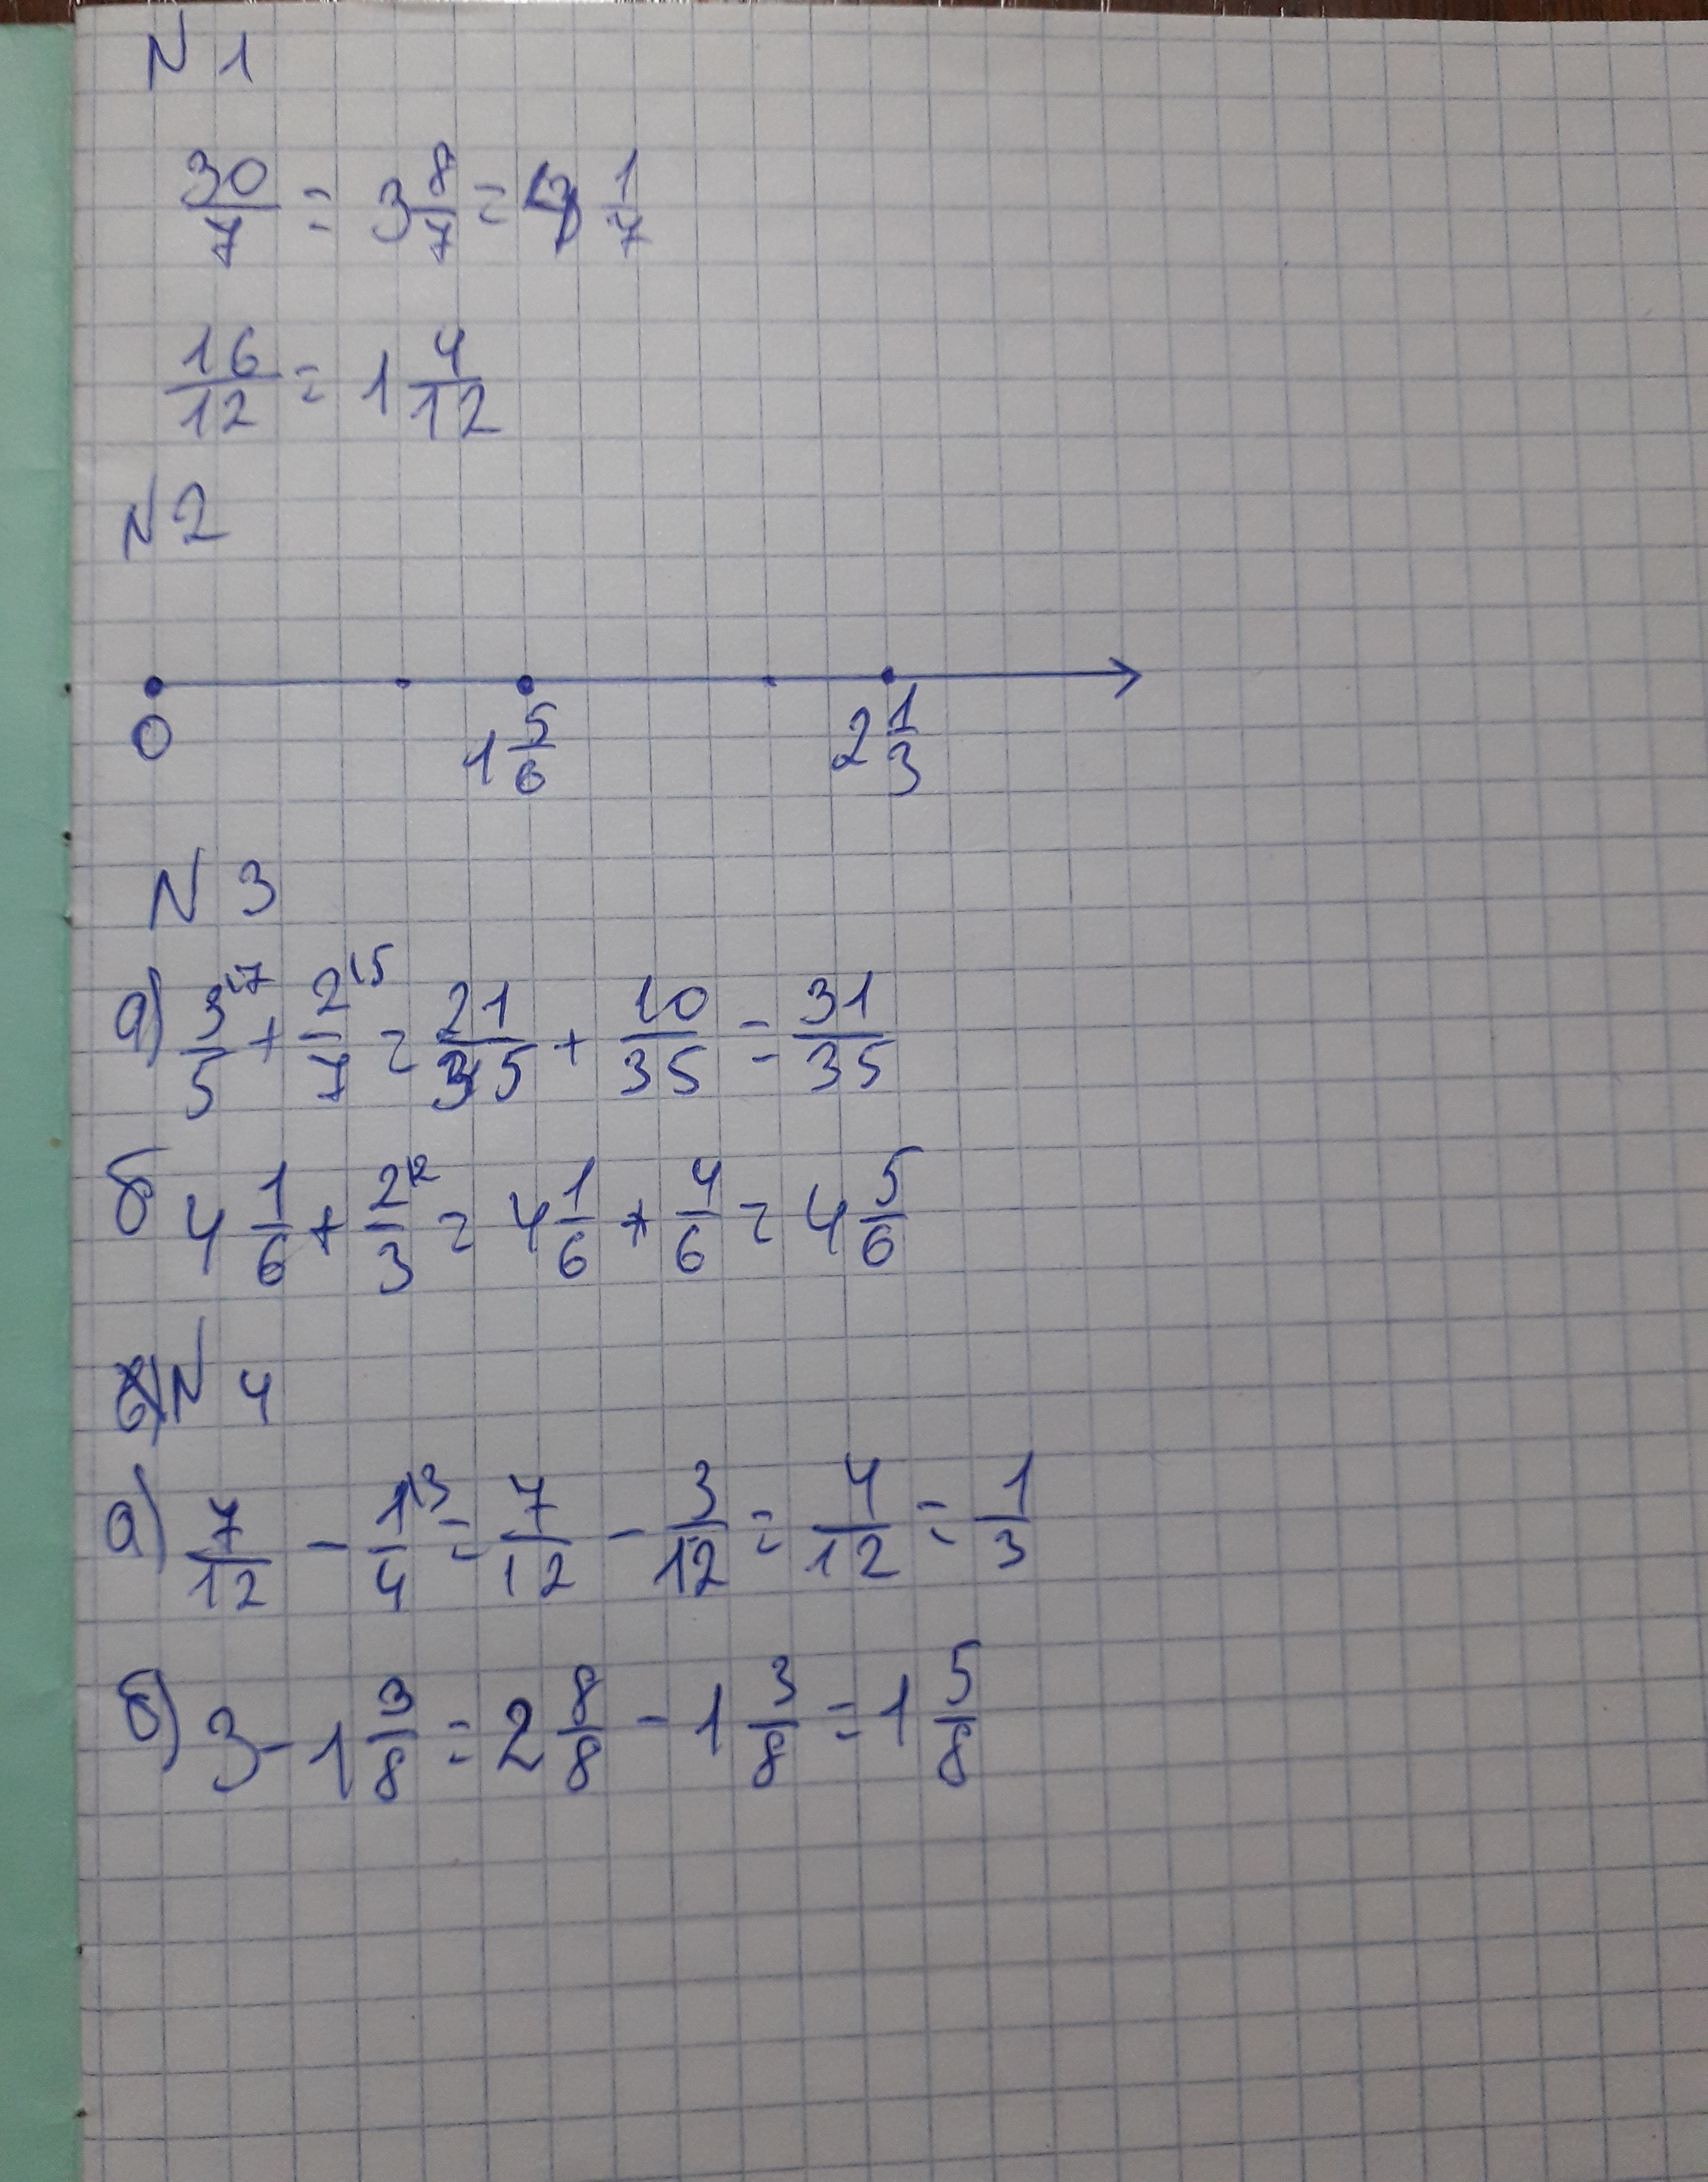 N 1
30/7 = 3 8/7 = 4 1/7
16/12 = 1 4/12
N 2
0 1 5/6 2 1/3
N 3
а) 3/5 \7 + 2/7 \5 = 21/35 + 10/35 = 31/35
б 4 1/6 + 2/3 \2 = 4 1/6 + 4/6 = 4 5/6
N 4
а) 7/12 - 1/4 \3 = 7/12 - 3/12 = 4/12 = 1/3
б) 3 - 1 3/8 = 2 8/8 - 1 3/8 = 1 5/8